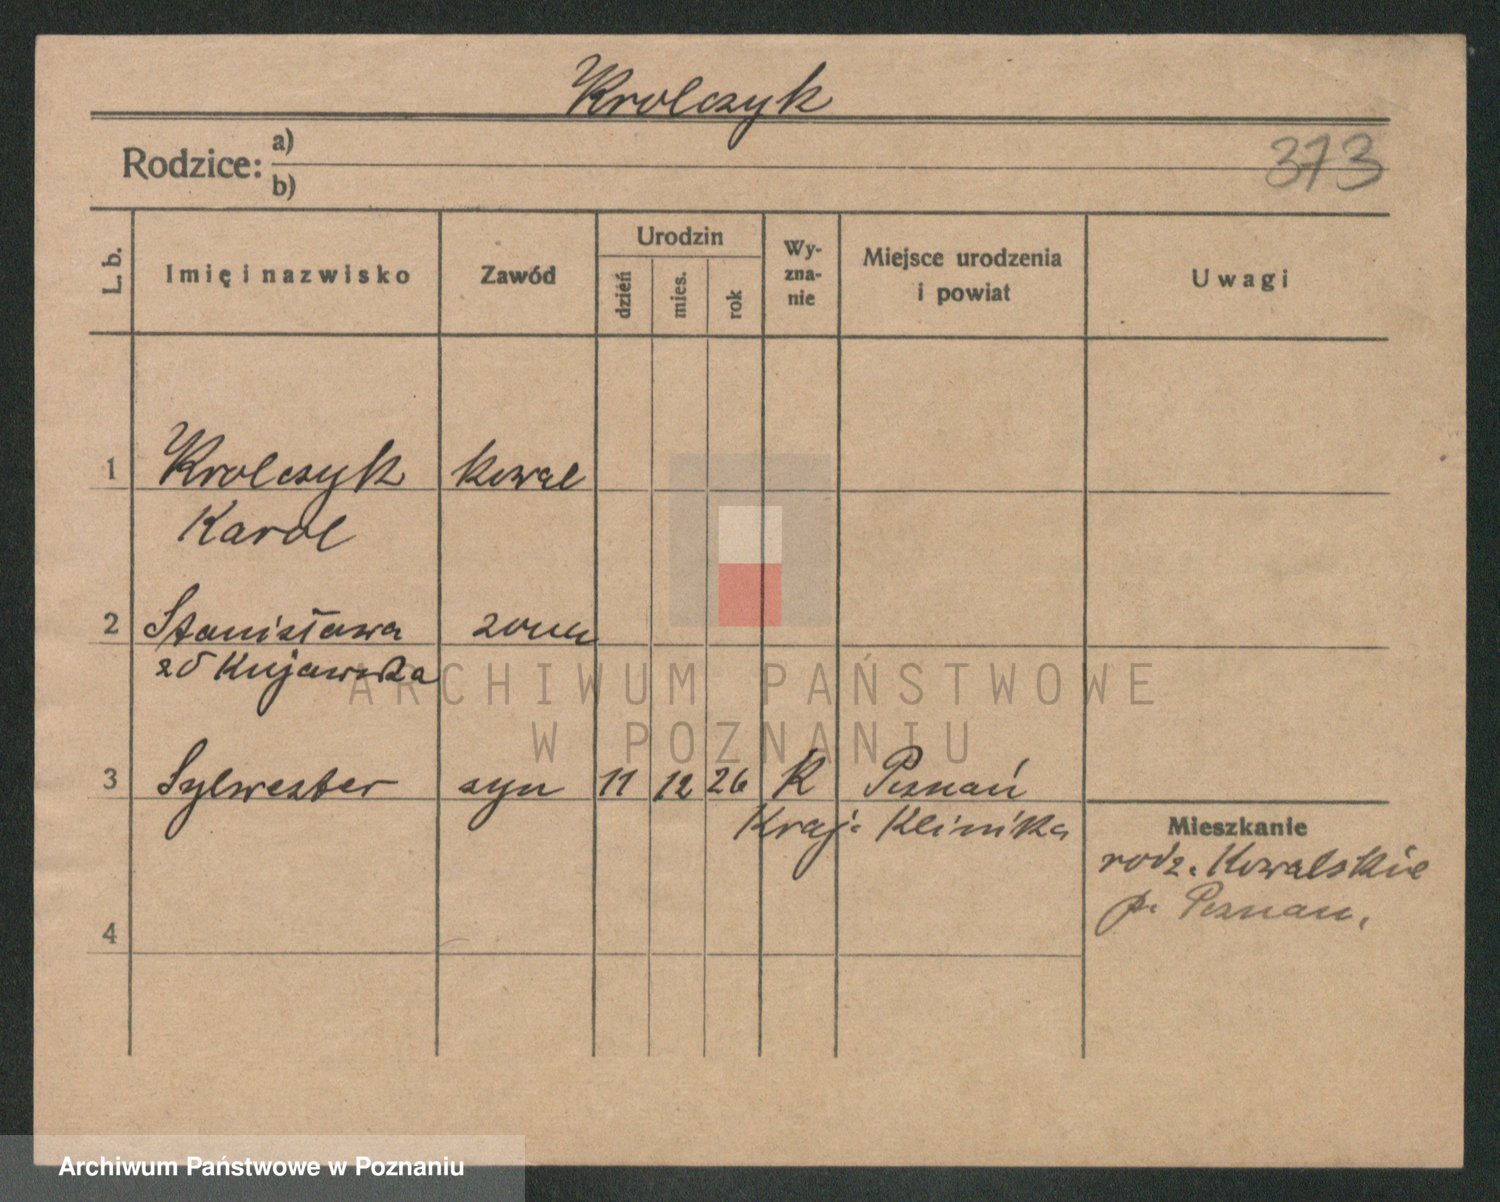 Krolczyk
Rodzice: a)
b)
373
L. b. Imię i nazwisko Zawód Urodzin dzień mies. rok Wy-zna-nie Miejsce urodzenia i powiat Uwagi
1 Krolczyk kowal
Karol
2 Stanisława zona
zd Kujawska
3 Sylwester syn 11 12 26 K Poznań
Kraj. Klinika
Mieszkanie
rodz. Kowalskie
p. Poznan.
4
ARCHIWUM PAŃSTWOWE
W POZNANIU
Archiwum Państwowe w Poznaniu